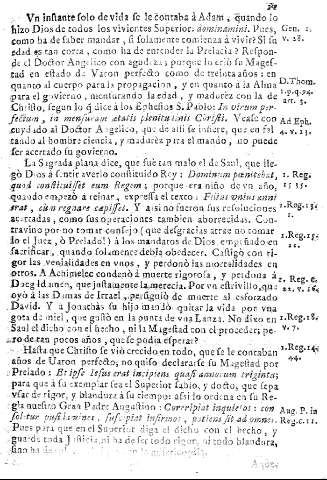 Vn infante solo de vida se le contaba à Adam, quando lo
hizo Dios de todos los vivientes Superior: dominamini. Pues,
como ha de saber mandar, si solamente comienza à vivir? Si su
edad es tan corta, como ha de entender la Prelacia? Respon-
de el Doctor Angelico con agudeza: porque lo criò su Mages-
tad en estado de Varon perfecto como de treinta años: en
quanto al cuerpo para la propagacion, y en quanto à la Alma
para el govierno, mensurando la edad, y madurèz con la de
Christo, segun lo que dice à los Ephesios S. Pablo: In virum per-
fectum, in mensuram ætatis plenitudinis Christi. Vease con
cuydado al Doctor Angelico, que de alli se infiere, que en fal-
tando al hombre ciencia, y madurèz para el mando, no puede
ser acertado su govierno.
La Sagrada plana dice, que fuè tan malo el de Saul, que lle-
gò Dios à sentir averlo constituido Rey: Dominum pænitebat,
quod constituisset eum Regem; porque era niño de vn año,
quando empezò à reinar, expressa el texto: Filius unius anni
erat, cùm regnare cæpisset. Y assi no fueron sus resoluciones
acertadas, como sus operaciones tambien aborrecidas. Con-
travino por no tomar consejo (que desgracias atrae no tomar-
lo el Juez, ò Prelado!) à los mandatos de Dios empeñado en
sacrificar, quando solamente debia obedecer. Castigò con ri-
gor las venialidades en vnos, y perdonò las mortalidades en
otros. A Achimelec condenò à muerte rigorosa, y perdona à
Doeg Idumeo, que justamente la merecia. Por vn estrivillo, que
oyò à las Damas de Israel, persiguiò de muerte al esforzado
David. Y à Jonathàs su hijo mandò quitar la vida por vna
gota de miel, que gastò en la punta de vna Lanza. No dixo en
Saul el dicho con el hecho, ni la Magestad con el proceder; pe-
ro de tan pocos años, que se podia esperar?
Hasta que Christo se viò crecido en todo, que se le contaban
años de Varon perfecto, no quiso declararse su Magestad por
Prelado: Et ipse Jesus erat incipiens quasi annorum triginta;
para que à su exemplar sea el Superior sabio, y docto, que sepa
vsar de rigor, y blandura à su tiempo: assi lo ordena en su Re-
gla nuestro Gran Padre Augustino: Corripiat inquietos: con-
soletur pusillanimes, suscipiat infirmos, patiens sit ad omnes.
Pues para que en el Superior diga el dicho con el hecho, y
guarde toda Justicia, ni ha de ser todo rigor, ni todo blandura,
sino ha de
Gen. 1.
v. 28.
D. Thom.
1. p. q. 94.
art. 3.
Ad Eph.
4. v. 13.
1. Reg.
15 35.
1. Reg. 13.
1. Reg. 15.
22.
1. Reg.
22. v. 16.
1. Reg. 18.
v. 7.
1. Reg. 14.
44.
Aug. P. in
Reg. c. 11.